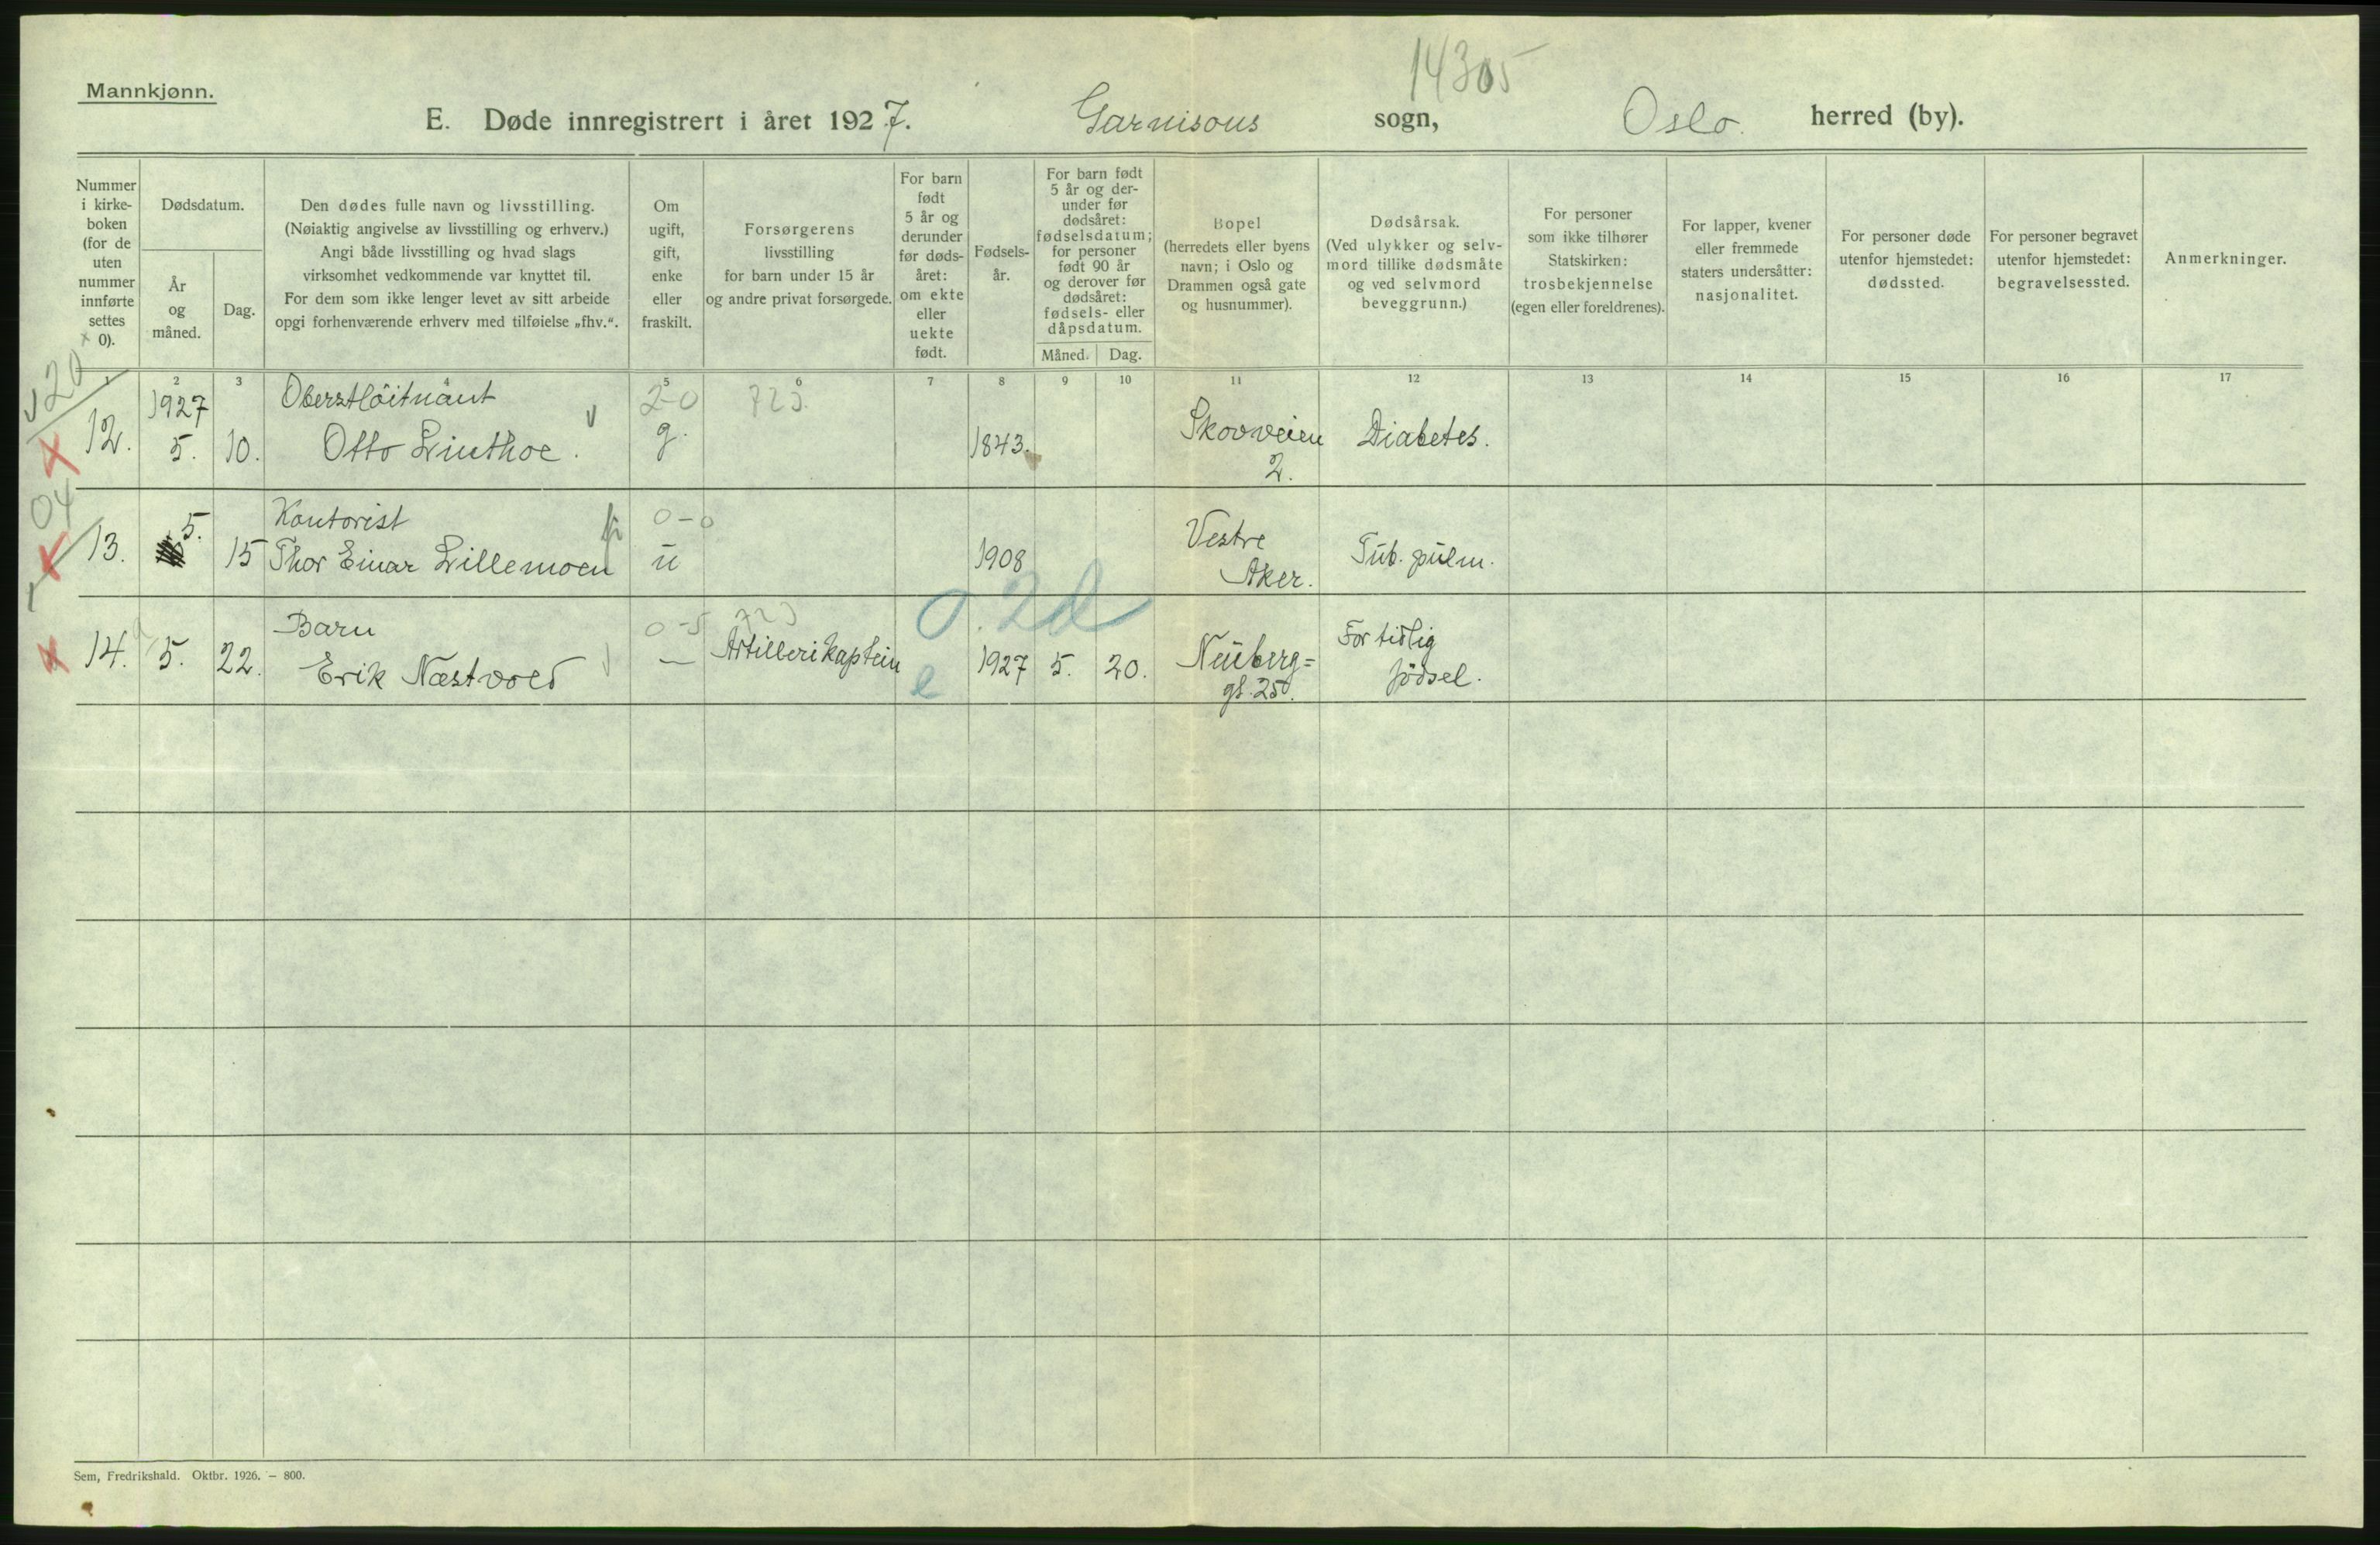 14305
Mannkjønn.
E. Døde innregistrert i året 1927. Garnisons sogn, Oslo. herred (by).
Nummer
i kirke-
boken
(for de
uten
nummer
innførte
settes
0).
Dødsdatum.
År
og
måned.
Dag.
Den dødes fulle navn og livsstilling.
(Nøiaktig angivelse av livsstilling og erhverv.)
Angi både livsstilling og hvad slags
virksomhet vedkommende var knyttet til.
For dem som ikke lenger levet av sitt arbeide
opgi forhenværende erhverv med tilføielse „fhv.“.
Om
ugift,
gift,
enke
eller
fraskilt.
Forsørgerens
livsstilling
for barn under 15 år
og andre privat forsørgede.
For barn
født
5 år og
derunder
før døds-
året:
om ekte
eller
uekte
født.
Fødsels-
år.
For barn født
5 år og der-
under før
dødsåret:
fødselsdatum;
for personer
født 90 år
og derover før
dødsåret:
fødsels- eller
dåpsdatum.
Måned.
Dag.
Bopel
(herredets eller byens
navn; i Oslo og
Drammen også gate
og husnummer).
Dødsårsak.
(Ved ulykker og selv-
mord tillike dødsmåte
og ved selvmord
beveggrunn.)
For personer
som ikke tilhører
Statskirken:
trosbekjennelse
(egen eller foreldrenes).
For lapper, kvener
eller fremmede
staters undersåtter:
nasjonalitet.
For personer døde
utenfor hjemstedet:
dødssted.
For personer begravet
utenfor hjemstedet:
begravelsessted.
Anmerkninger.
1 2 3 4 5 6 7 8 9 10 11 12 13 14 15 16 17
20
1927 Oberstlöitnant 2-0 723.
12. 5. 10. Otto Linthoe. g. 1843. Skovveien Diabetes.
2.
04
5. Kontorist 0-0 Vestre
13. 15 Thor Einar Lillemoen u 1908 Aker. Tub. pulm.
Barn 0-5 723 0.2d For tidlig
14. 5. 22. Erik Næstvold — Artillerikaptein e 1927 5. 20. Neuberg= födsel.
gt. 25
Sem, Fredrikshald. Oktbr. 1926. – 800.